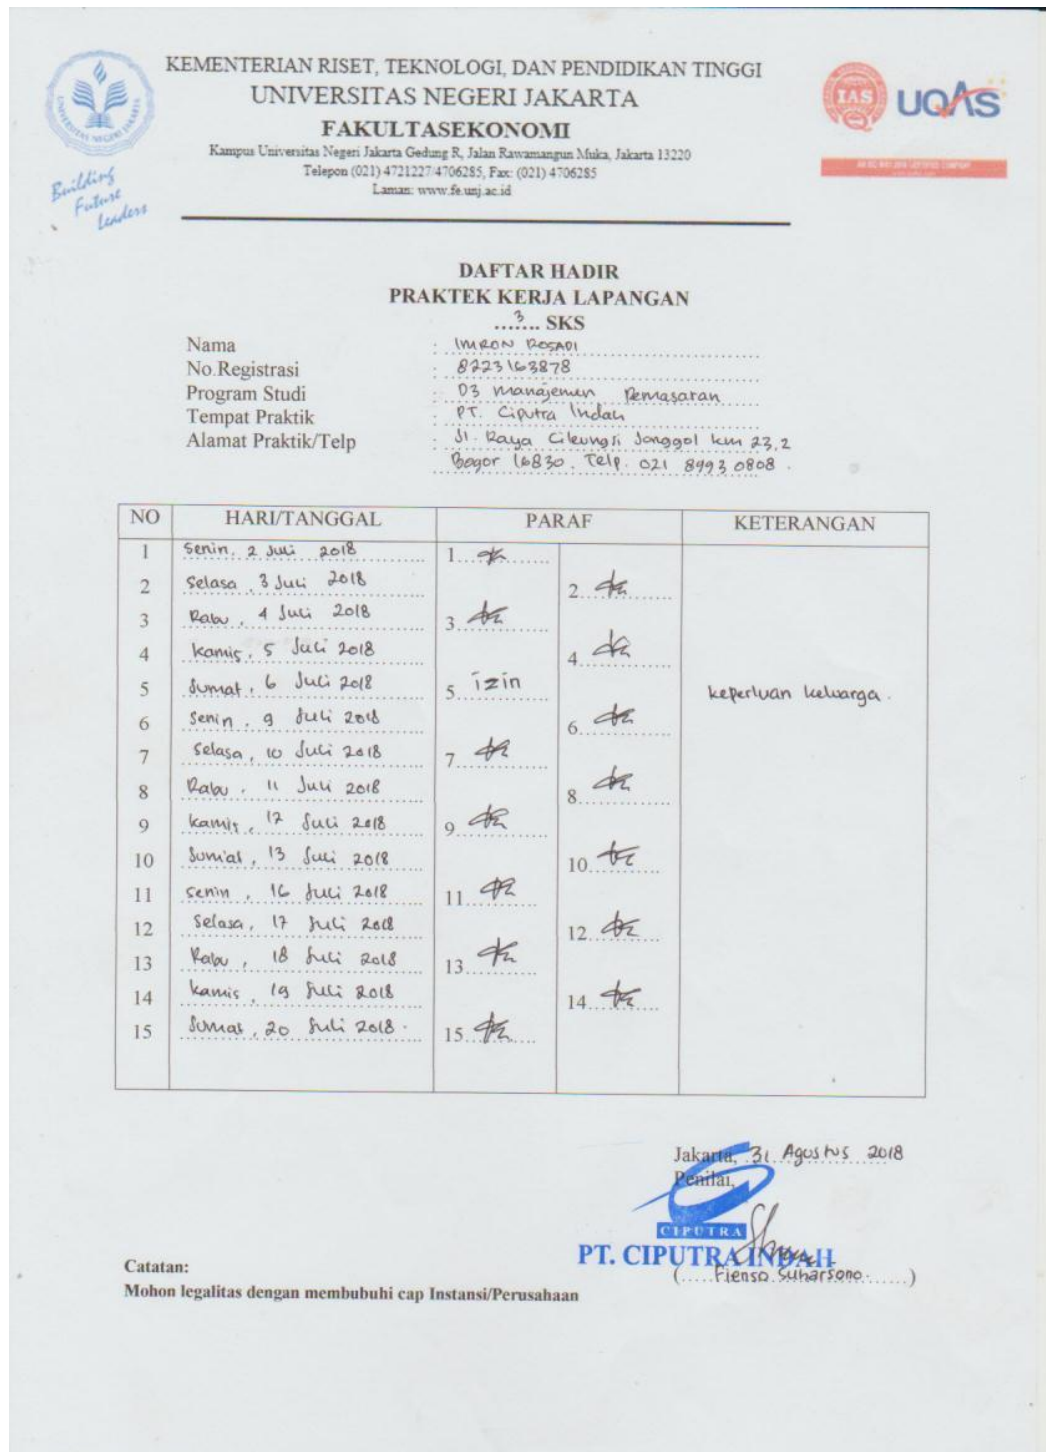 KEMENTERIAN RISET, TEKNOLOGI, DAN PENDIDIKAN TINGGI
UNIVERSITAS NEGERI JAKARTA
FAKULTASEKONOMI
Kampus Universitas Negeri Jakarta Gedung R, Jalan Rawamangun Muka, Jakarta 13220
Telepon (021) 4721227/4706285, Fax: (021) 4706285
Laman: www.fe.unj.ac.id
UNIVERSITAS NEGERI JAKARTA
Building
Future
Leaders
IAS
UQAS
DAFTAR HADIR
PRAKTEK KERJA LAPANGAN
...3.... SKS
Nama : IMRON ROSADI
No.Registrasi : 8223163878
Program Studi : D3 Manajemen Pemasaran
Tempat Praktik : PT. Ciputra Indah
Alamat Praktik/Telp : Jl. Raya Cileungsi Jonggol km 23,2
Bogor 16830. Telp. 021 8993 0808.
NO HARI/TANGGAL PARAF KETERANGAN
1 Senin, 2 Juli 2018 1.
2 Selasa, 3 Juli 2018 2.
3 Rabu, 4 Juli 2018 3.
4 Kamis, 5 Juli 2018 4.
5 Jumat, 6 Juli 2018 5. izin keperluan keluarga.
6 Senin, 9 Juli 2018 6.
7 Selasa, 10 Juli 2018 7.
8 Rabu, 11 Juli 2018 8.
9 Kamis, 12 Juli 2018 9.
10 Jumat, 13 Juli 2018 10.
11 Senin, 16 Juli 2018 11.
12 Selasa, 17 Juli 2018 12.
13 Rabu, 18 Juli 2018 13.
14 Kamis, 19 Juli 2018 14.
15 Jumat, 20 Juli 2018. 15.
Jakarta, 31 Agustus 2018
Penilai,
CIPUTRA
PT. CIPUTRA INDAH
(.....Fienso Suharsono.......)
Catatan:
Mohon legalitas dengan membubuhi cap Instansi/Perusahaan